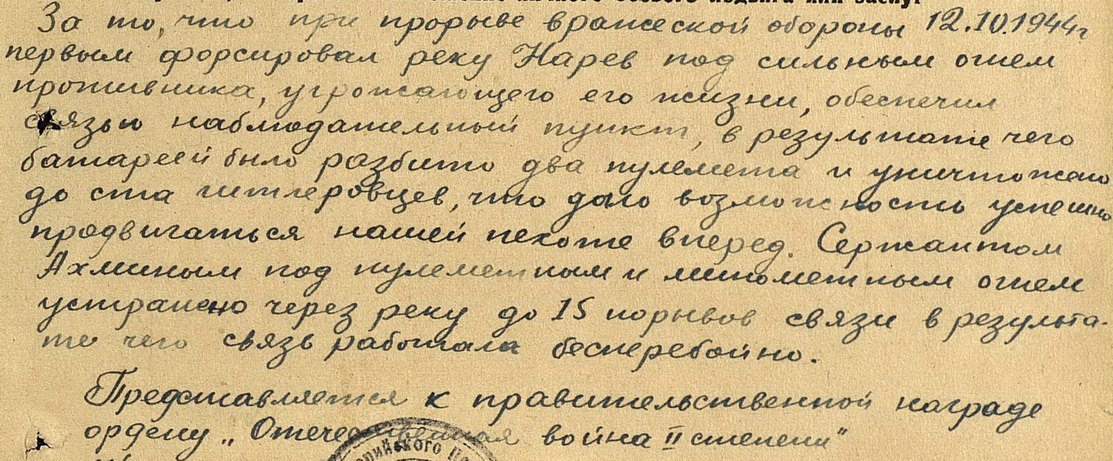 личного боевого подвига или заслуг
За то, что при прорыве вражеской обороны 12.10.1944г
первым форсировал реку Нарев под сильным огнем
противника, угрожающего его жизни, обеспечил
связью наблюдательный пункт, в результате чего
батареей было разбито два пулемета и уничтожено
до ста гитлеровцев, что дало возможность успешно
продвигаться нашей пехоте вперед. Сержантом
Ахминым под пулеметным и минометным огнем
устранено через реку до 15 порывов связи в результа-
те чего связь работала бесперебойно.
Представляется к правительственной награде
ордену „Отечественная война II степени"